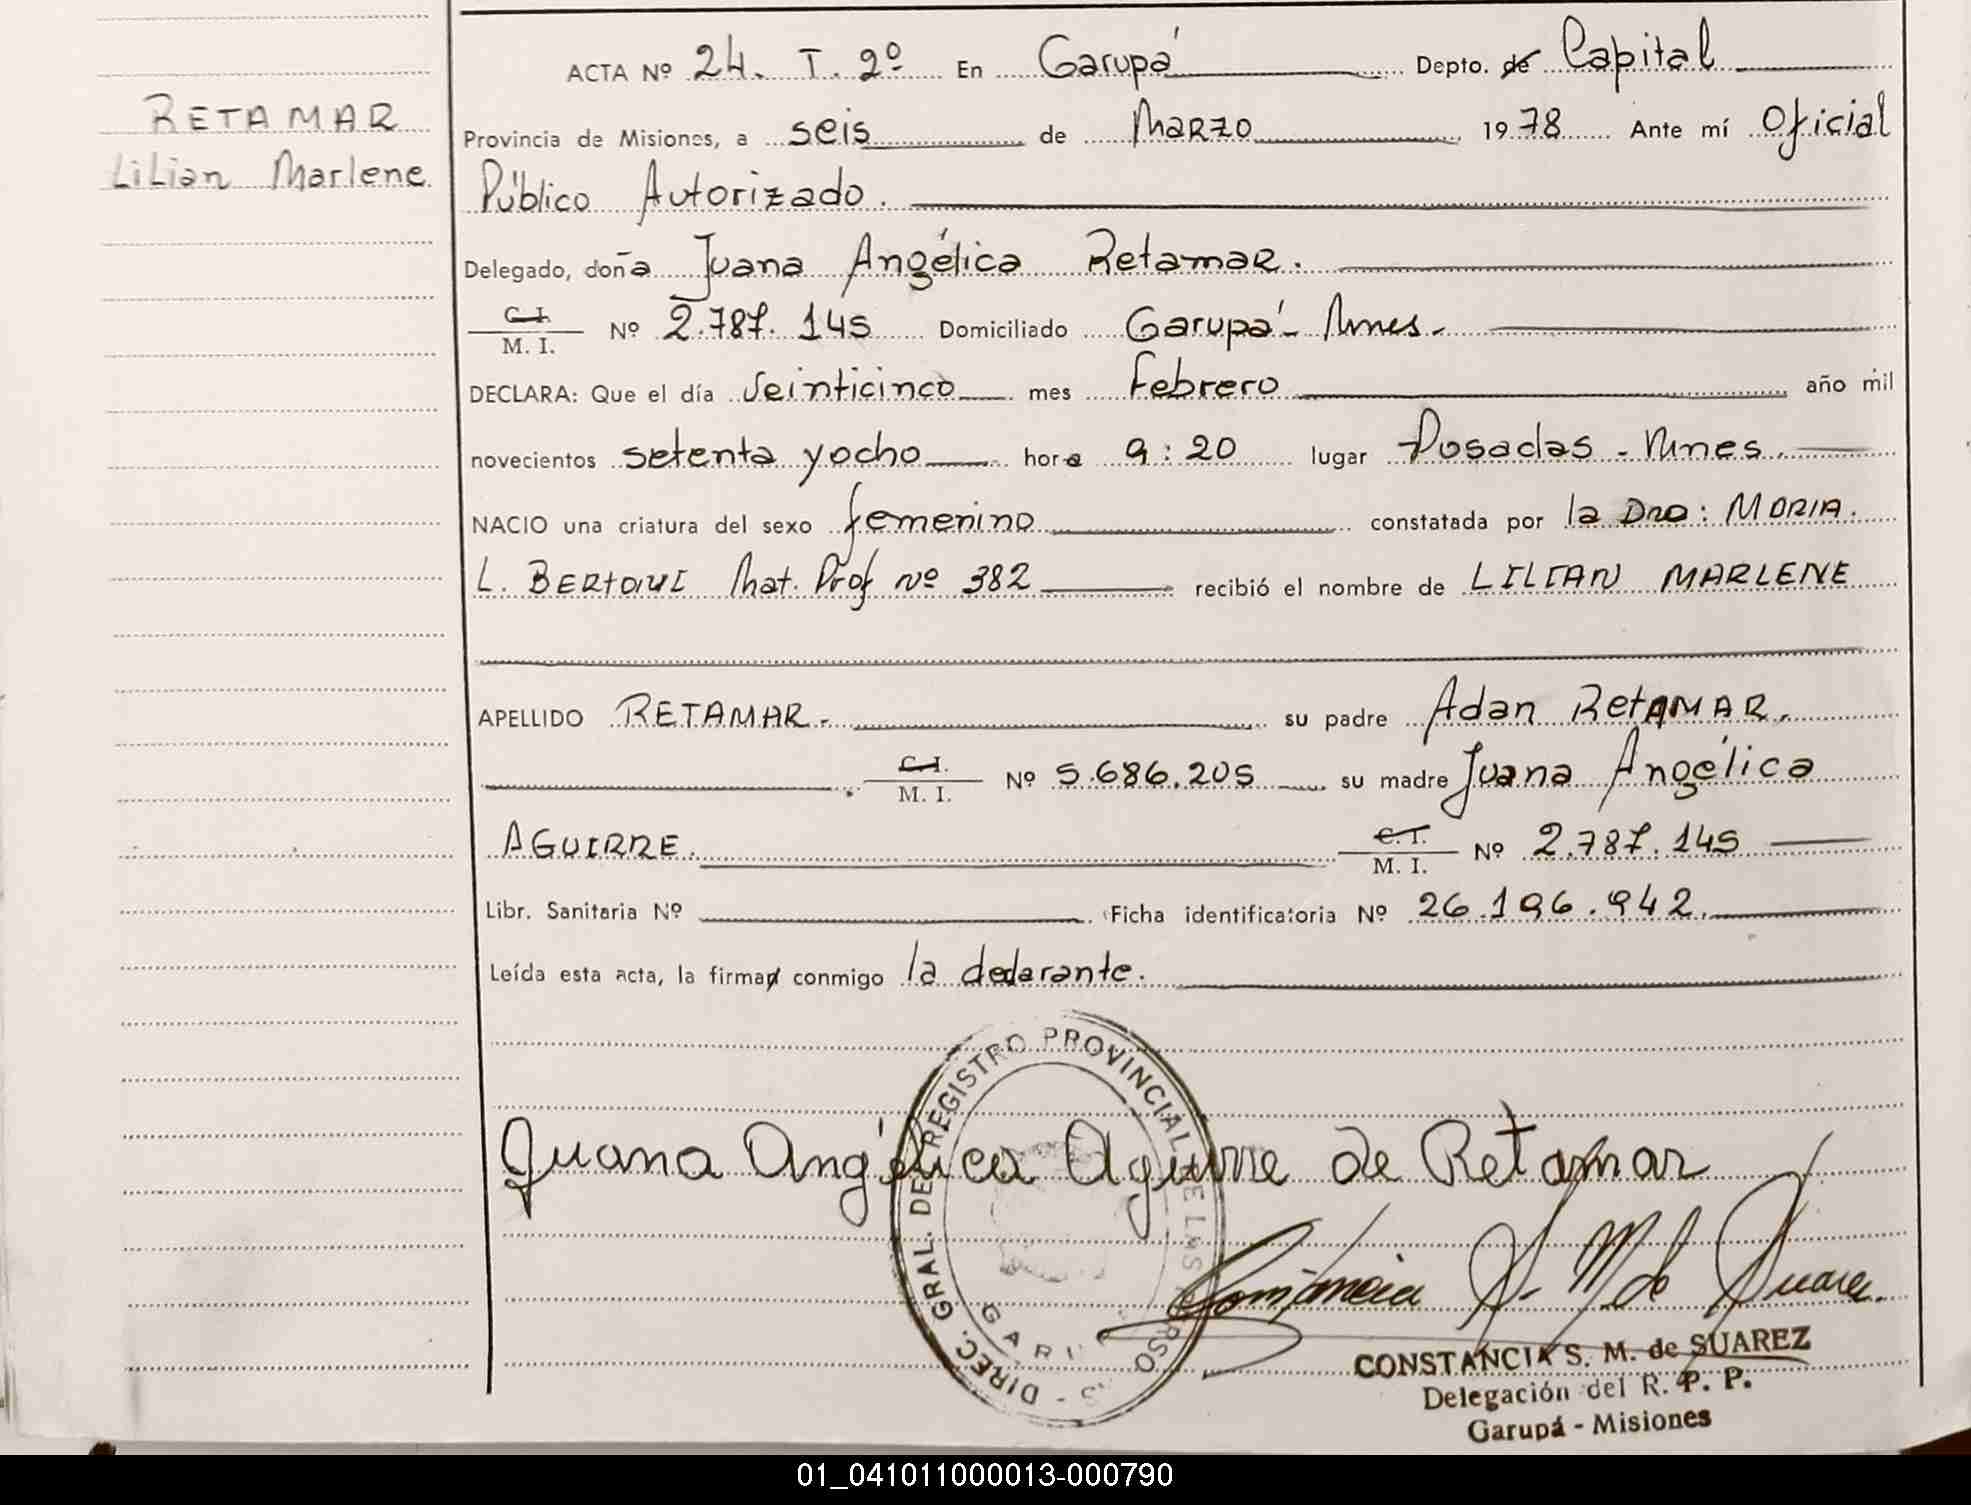 RETAMAR
Lilian Marlene
ACTA Nº 24. T. 2º En Garupá Depto. de Capital
Provincia de Misiones, a seis de Marzo 1978 Ante mí Oficial
Público Autorizado.
Delegado, doña Juana Angélica Retamar.
C. I. / M. I. Nº 2.787.145 Domiciliado Garupá - Mnes.
DECLARA: Que el día Veinticinco mes Febrero año mil
novecientos setenta y ocho hora 9:20 lugar Posadas - Mnes.
NACIO una criatura del sexo femenino constatada por la Dra: MORIA.
L. Mat. Prof nº 382 recibió el nombre de LILIAN MARLENE
APELLIDO RETAMAR. su padre Adan RETAMAR.
C. I. / M. I. Nº 5.686.205 su madre Juana Angélica
AGUIRRE. C. I. / M. I. Nº 2.787.145
Libr. Sanitaria Nº Ficha identificatoria Nº 26.196.942.
Leída esta acta, la firman conmigo la declarante.
DIREC. GRAL. DEL REGISTRO PROVINCIAL DE LAS PERSO
Juana Angélica Aguirre de Retamar
Constancia S. M. de Suarez.
CONSTANCIA S. M. de SUAREZ
Delegación del R. P. P.
Garupá - Misiones
01_041011000013-000790